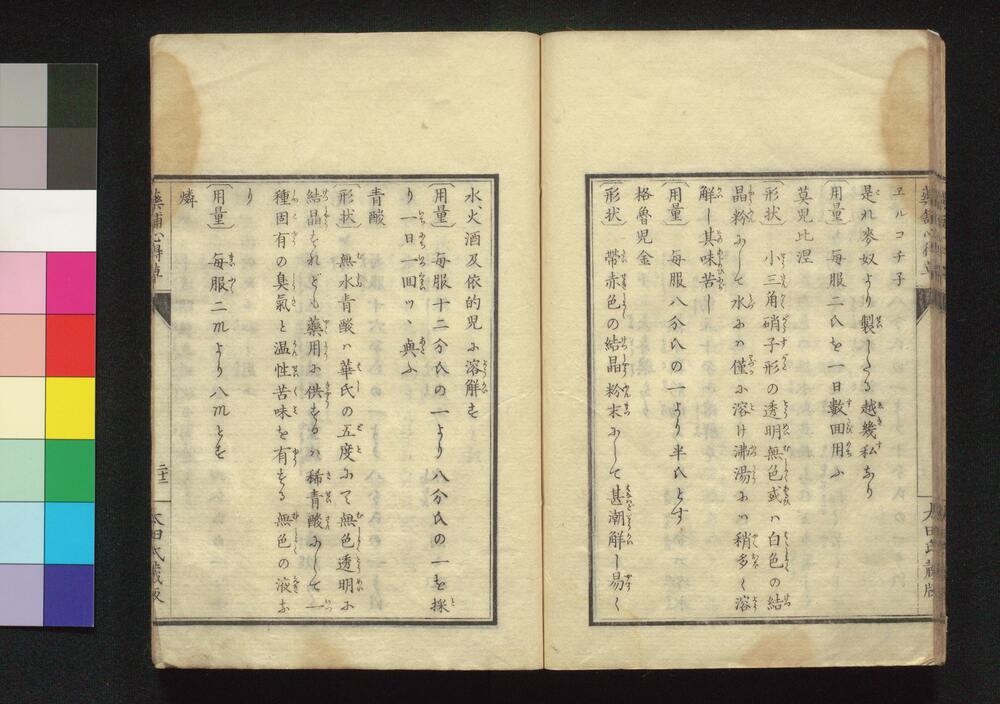 ヱルコチ子
是れ麥奴より製したる越幾私なり
〔用量〕 毎服二氏を一日數回用ふ
莫児比涅
〔形状〕 小三角硝子形の透明無色或ハ白色の結
晶粉にして水にハ僅に溶け沸湯にハ稍多く溶
解し其味苦し
〔用量〕 毎服八分氏の一より半氏とす
格魯児金
〔形状〕 帶赤色の結晶粉末にして甚潮解し易く
水火酒及依的児に溶解す
〔用量〕 毎服十二分氏の一より八分氏の一を採
り一日一回ツヽ與ふ
青酸
〔形状〕 無水青酸ハ華氏の五度にて無色透明に
結晶すれども藥用に供するハ稀青酸にして一
種固有の臭氣と温性苦味を有する無色の液な
り
〔用量〕 毎服二㎖より八㎖とす
燐
藥舗心得草
二十二
太田氏蔵版